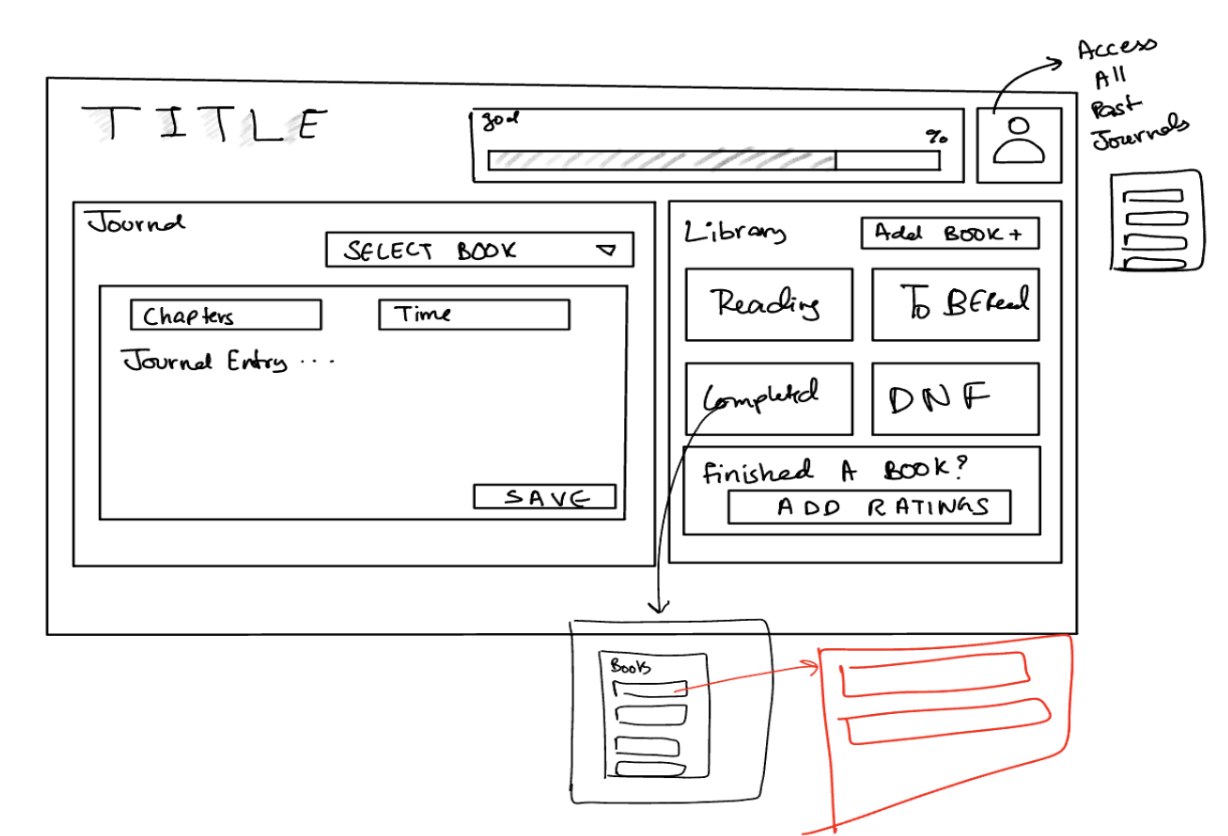 TITLE
goal
%
Access
All
Past
Journals
Journal
SELECT BOOK
Chapters
Time
Journal Entry ...
SAVE
Library
Add BOOK +
Reading
To BE Read
Completed
DNF
Finished A BOOK?
ADD RATINGS
Books